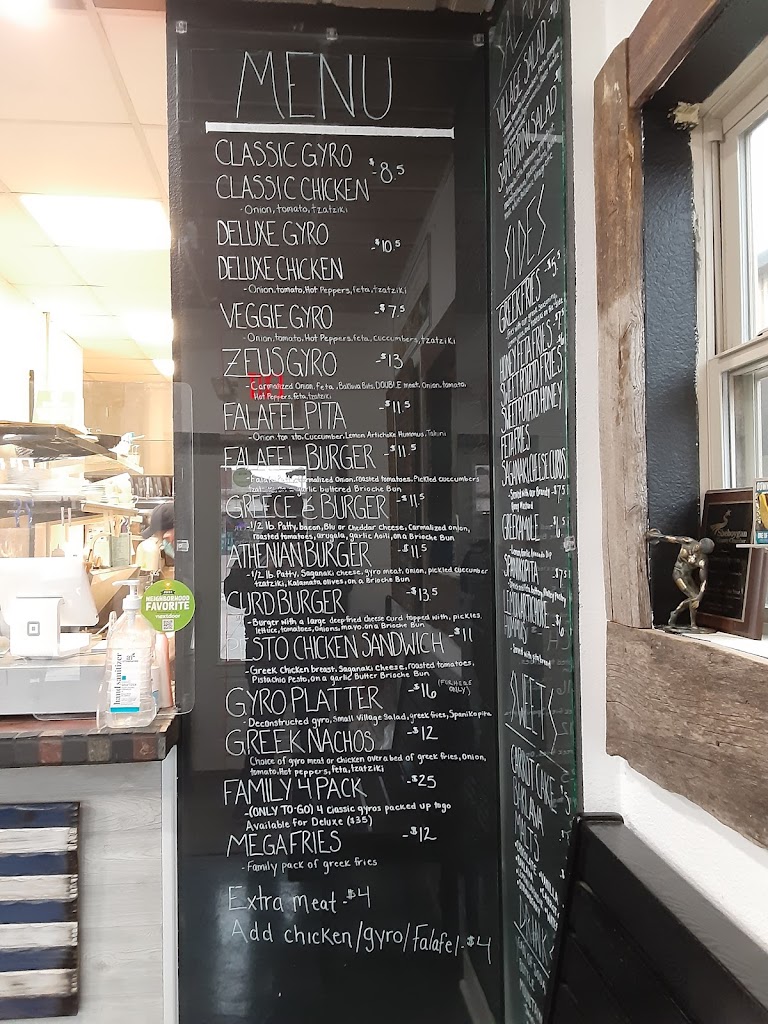 MENU
CLASSIC GYRO
-$8.5
CLASSIC CHICKEN
- Onion, tomato, tzatziki
DELUXE GYRO
-$10.5
DELUXE CHICKEN
- Onion, tomato, Hot Peppers, feta, tzatziki
VEGGIE GYRO -$7.5
- Onion, tomato, Hot Peppers, feta, cuccumbers, tzatziki
ZEUS GYRO -$13
- Carmalized Onion, feta, Baklava Bits, DOUBLE meat, Onion, tomato,
Hot Peppers, feta, tzatziki
FALAFEL PITA -$11.5
- Onion, Cuccumber, Lemon Artichoke Hummus, Tahini
FALAFEL BURGER -$11.5
Onion, roasted tomatoes, Pickled cuccumbers
garlic buttered Brioche Bun
GREECE E BURGER -$11.5
- 1/2 lb. Patty, bacon, Blu or Cheddar Cheese, Carmalized onion,
roasted tomatoes, arugala, garlic Aoili, on a Brioche Bun
ATHENIAN BURGER -$11.5
- 1/2 lb. Patty, Saganaki cheese, gyro meat, onion, pickled cuccumber
tzatziki, Kalamata olives, on a Brioche Bun
CURD BURGER -$13.5
- Burger with a large deep fried cheese curd topped with, pickles,
lettuce, tomatoes, onions, mayo, on a Brioche Bun
PESTO CHICKEN SANDWICH -$11
- Greek Chicken breast, Saganaki Cheese, roasted tomatoes,
Pistachio Pesto, on a garlic Butter Brioche Bun
GYRO PLATTER -$16 (FOR HERE ONLY)
- Deconstructed gyro, Small Village Salad, greek fries, Spanikopita
GREEK NACHOS -$12
Choice of gyro meat or chicken over a bed of greek fries, onion,
tomato, Hot peppers, feta, tzatziki
FAMILY 4 PACK -$25
- (ONLY TO-GO) 4 Classic gyros packed up to go
Available for Deluxe ($35)
MEGA FRIES -$12
- Family pack of greek fries
Extra meat -$4
Add chicken/gyro/Falafel -$4
VILLAGE SALAD
SANTORINI SALAD
SIDES
GREEK FRIES -$5.5
HONEY FETA FRIES
SWEET POTATO FRIES
SWEET POTATO HONEY
FETA FRIES
SAGANAKI CHEESE CURDS
SPANIKOPITA
HUMMUS
SWEETS
CARROT CAKE
BAKLAVA
MALTS
NEIGHBORHOOD
FAVORITE
nextdoor
hand sanitizer
Sheboygan